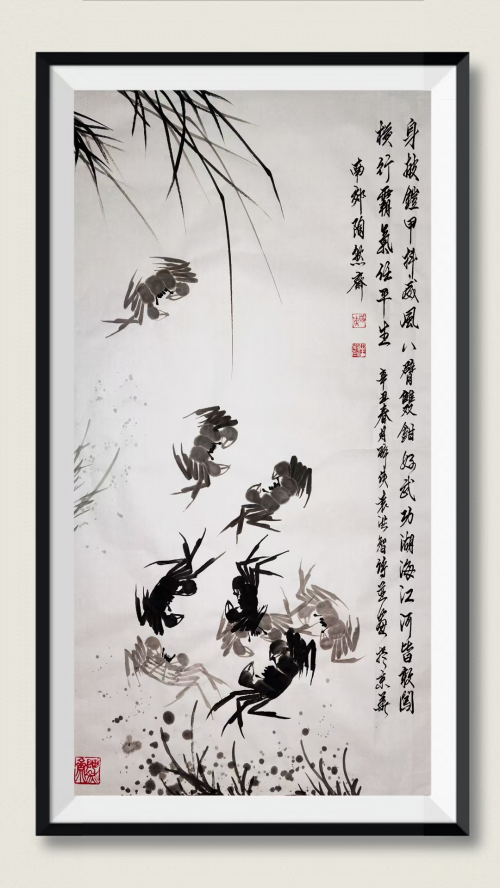 身披鎧甲抖威風八臂雙鉗好武功湖海江河皆敢闖
橫行霸氣任平生 辛丑春月袁洪智詩並畫於京華
南郊陶然齋